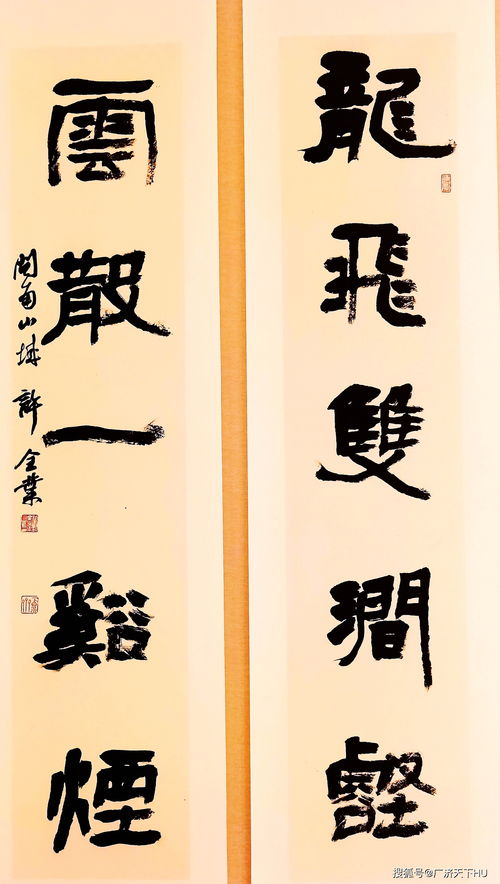 龍飛雙澗壑
雲散一谿煙
山城 許全業
搜狐号@广济天下HU